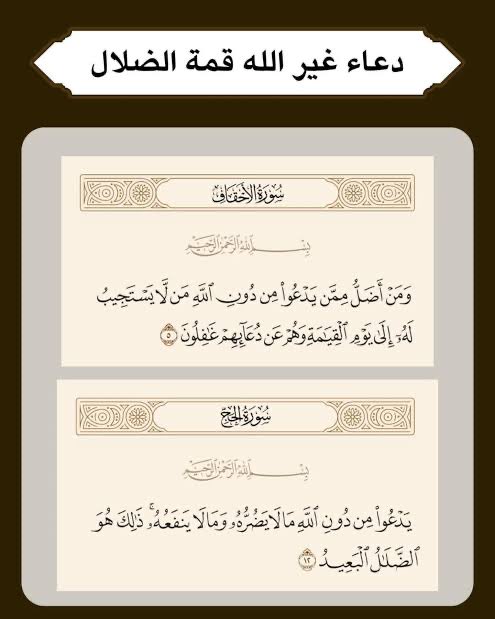 دعاء غير الله قمة الضلال
سُورَةُ الأَحْقَافِ
بِسْمِ اللَّهِ الرَّحْمَٰنِ الرَّحِيمِ
وَمَنْ أَضَلُّ مِمَّن يَدْعُوا۟ مِن دُونِ ٱللَّهِ مَن لَّا يَسْتَجِيبُ
لَهُۥٓ إِلَىٰ يَوْمِ ٱلْقِيَٰمَةِ وَهُمْ عَن دُعَآئِهِمْ غَٰفِلُونَ ٥
سُورَةُ الحَجِّ
بِسْمِ اللَّهِ الرَّحْمَٰنِ الرَّحِيمِ
يَدْعُوا۟ مِن دُونِ ٱللَّهِ مَا لَا يَضُرُّهُۥ وَمَا لَا يَنفَعُهُۥۚ ذَٰلِكَ هُوَ
ٱلضَّلَٰلُ ٱلْبَعِيدُ ١٢